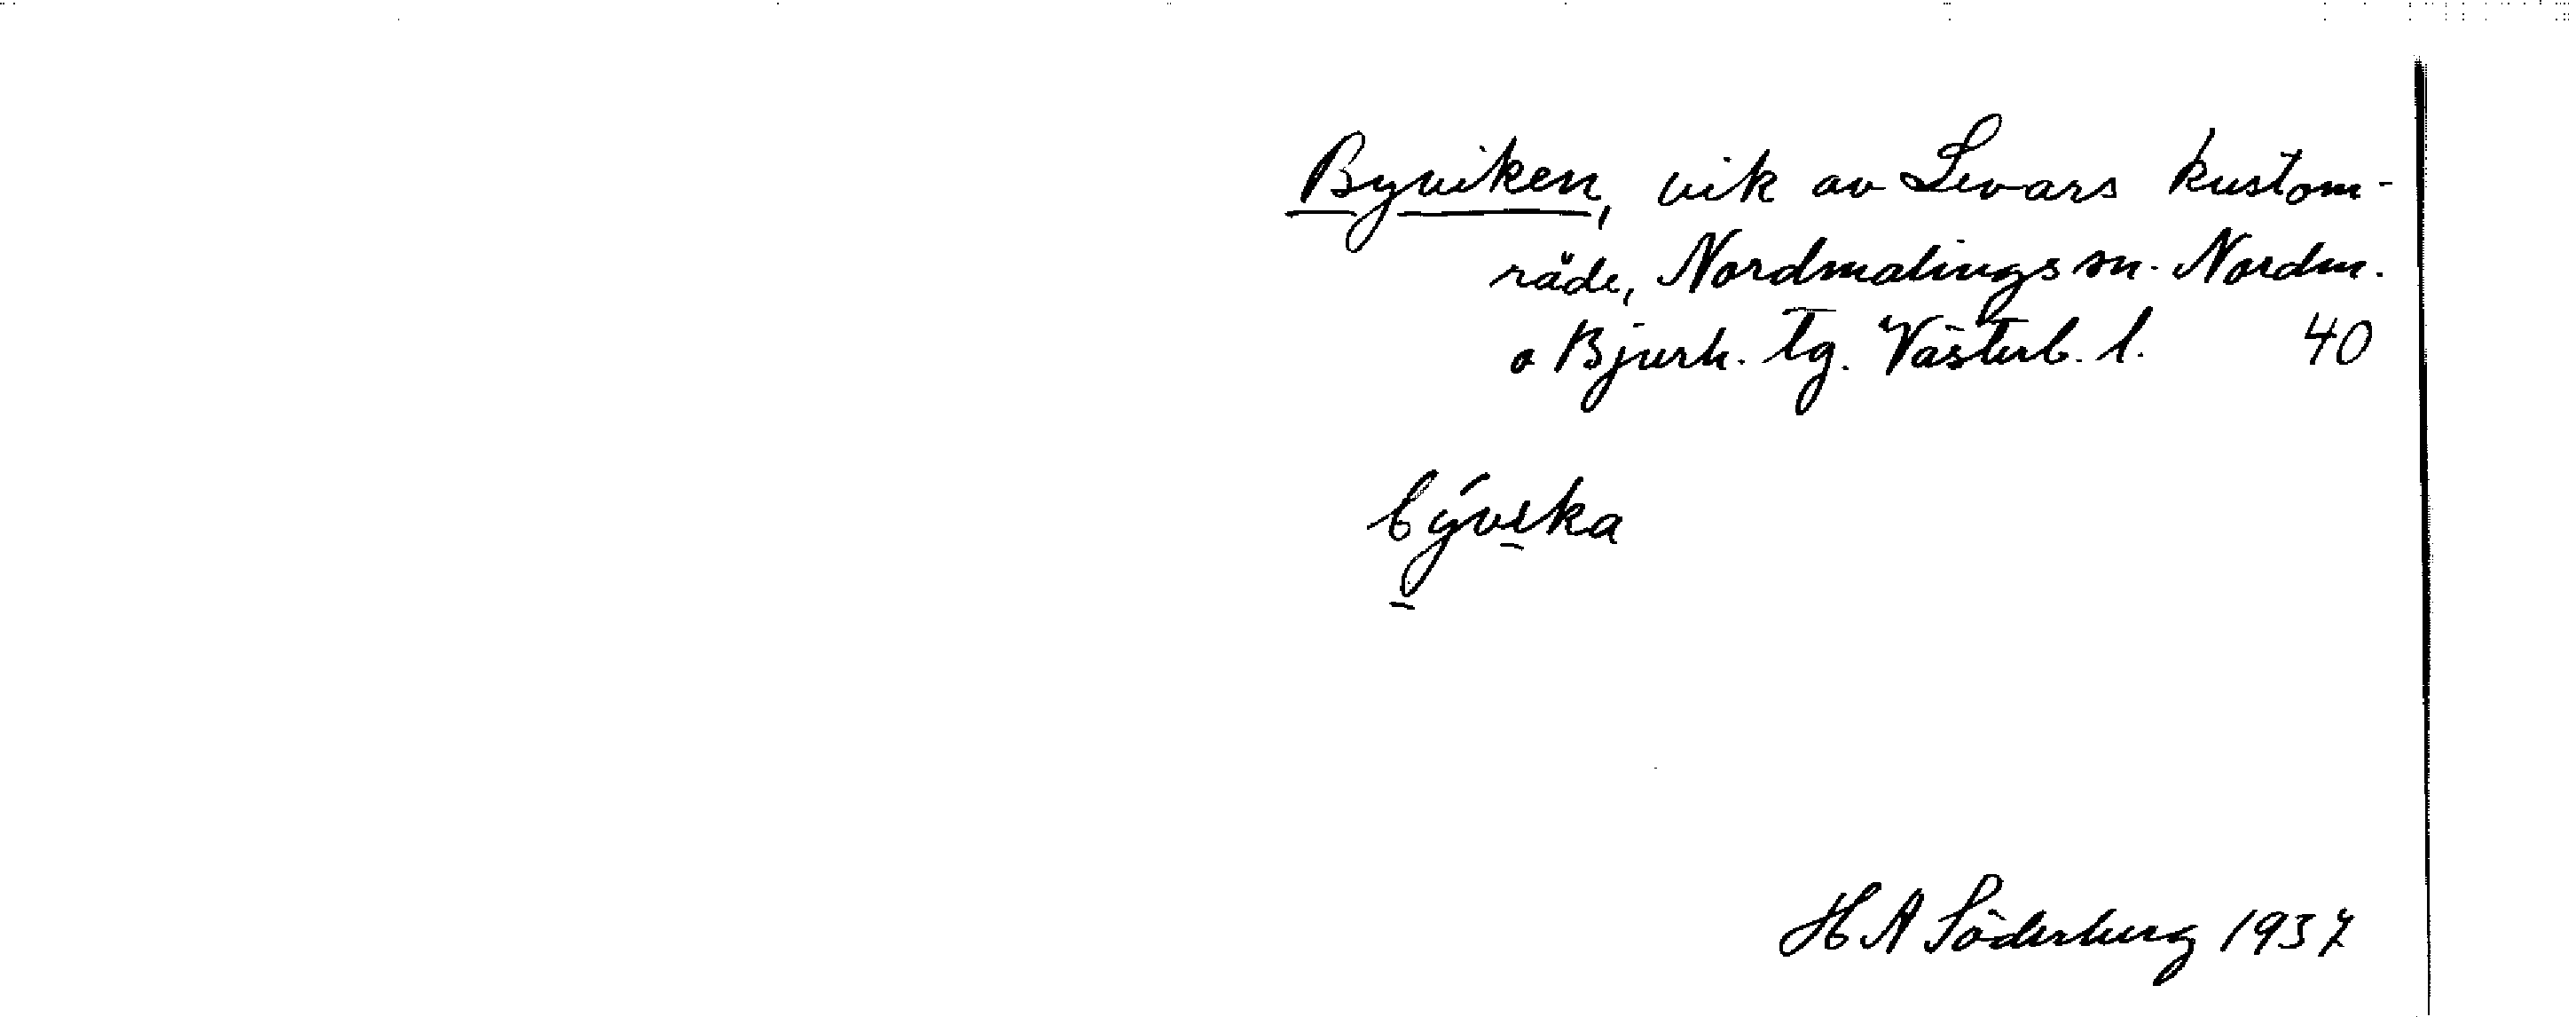 Byviken, vik av Levars kustom-
råde, Nordmalings sn. Nordm.
o Bjurh. tg. Västerb. l. 40
býveka
H A Söderberg 1937